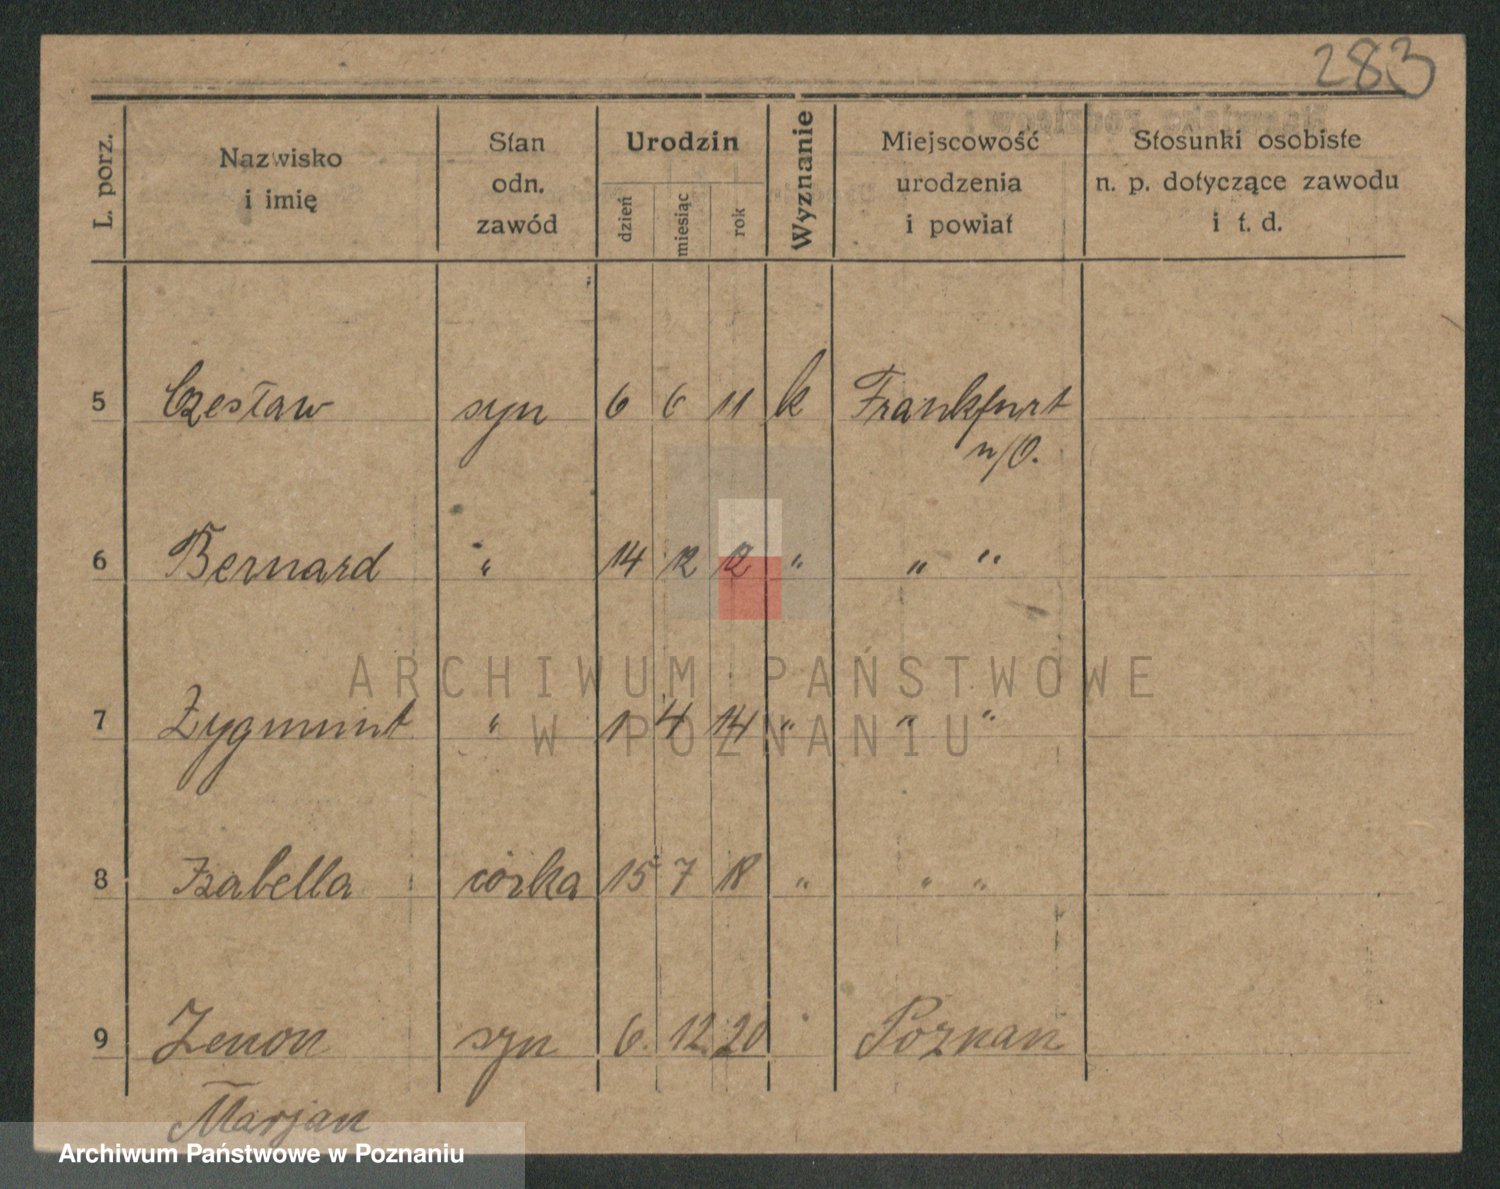 283
L. porz.
Nazwisko
i imię
Stan
odn.
zawód
Urodzin
dzień
miesiąc
rok
Wyznanie
Miejscowość
urodzenia
i powiat
Stosunki osobiste
n. p. dotyczące zawodu
i t. d.
5 Czesław syn 6 6 11 k Frankfurt
n/O.
6 Bernard " 14 12 12 " " "
7 Zygmunt " 1 4 14 " " "
8 Izabella córka 15 7 18 " " "
9 Zenon syn 6. 12. 20 Poznań
Marjan
ARCHIWUM PAŃSTWOWE
W POZNANIU
Archiwum Państwowe w Poznaniu